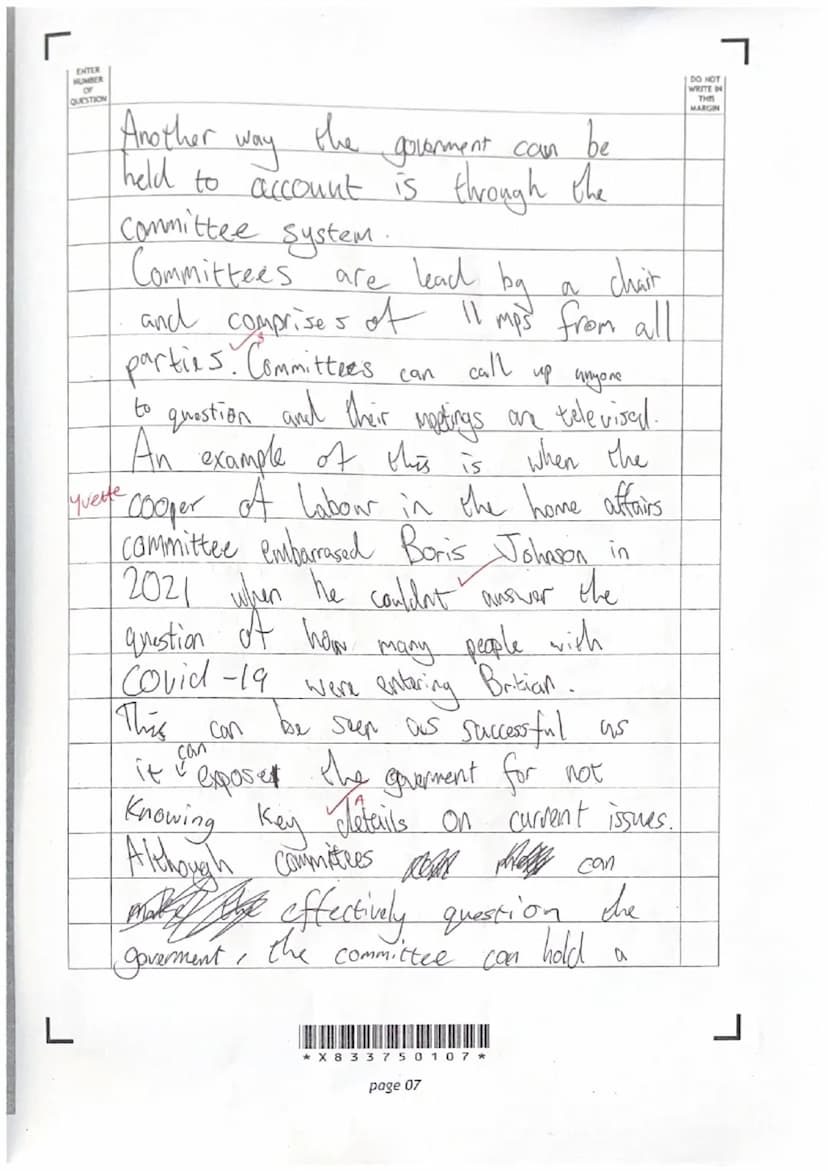 ENTER
NUMBER
OF
QUESTION
DO NOT
WRITE IN
THIS
MARGIN
Another way the goverment can be
held to account is through the
committee system.
Committees are lead by a chair
and comprises of 11 mps from all
parties. Committees can call up anyone
to question and their meetings are televised.
An example of this is when the
Yvette cooper of Labour in the home affairs
committee embarrased Boris Johnson in
2021 when he couldnt answer the
question of how many people with
Covid-19 were entering Britian.
This can be seen as successful as
it can expose the goverment for not
A
Knowing key details on current issues.
Although committees can
effectively question the
goverment, the committee can hold a
*X833750107*
page 07